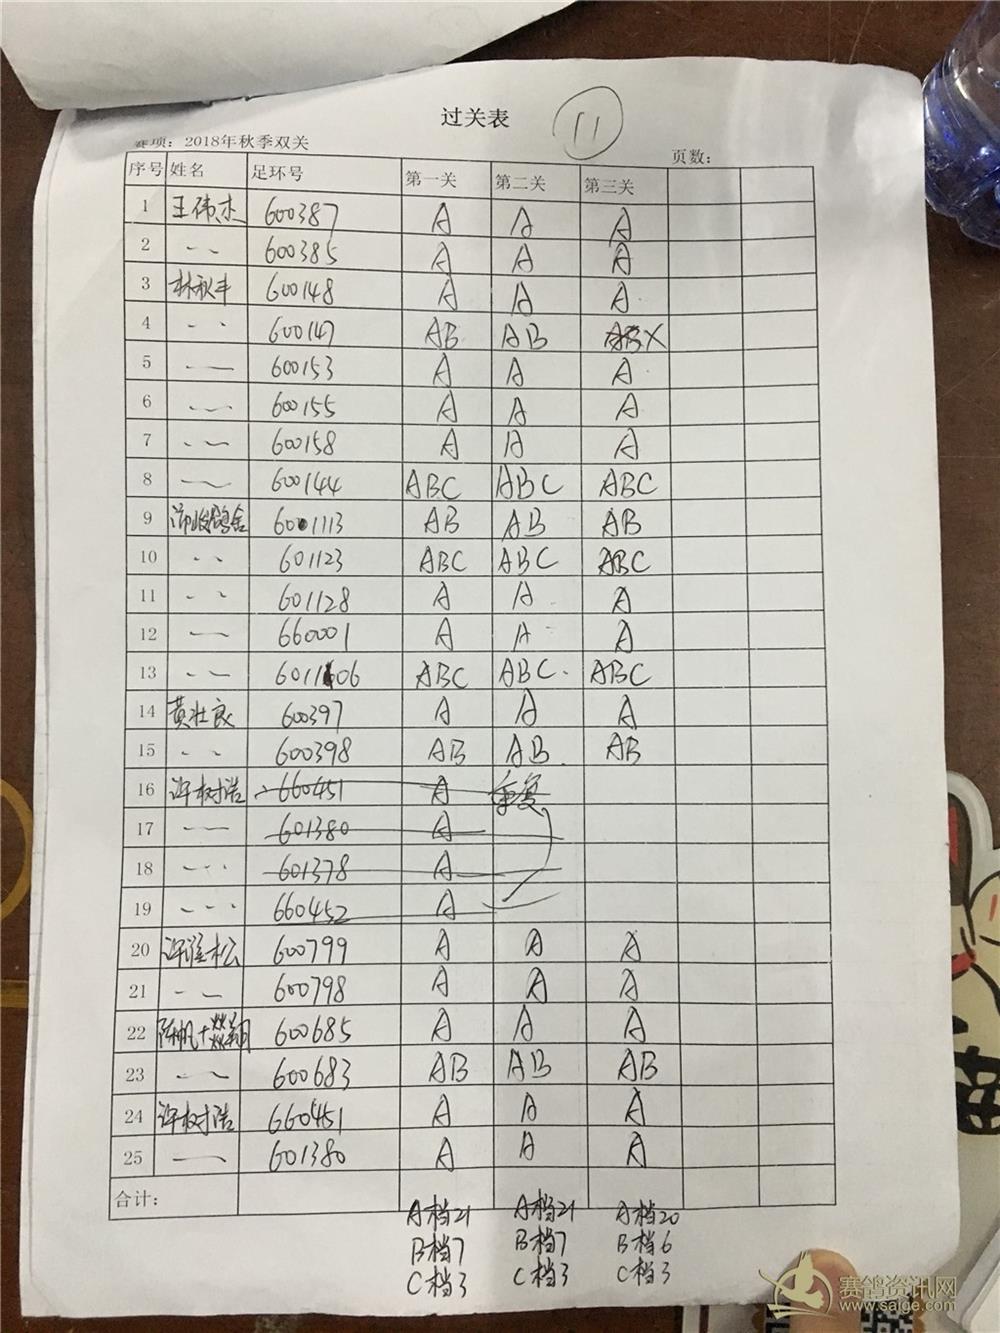 过关表 11
赛项：2018年秋季双关 页数：
序号 姓名 足环号 第一关 第二关 第三关
1 王伟杰 600387 A A A
2 〃 600385 A A A
3 林秋丰 600148 A A A
4 〃 600147 AB AB ABX
5 〃 600153 A A A
6 〃 600155 A A A
7 〃 600158 A A A
8 〃 600144 ABC ABC ABC
9 鸽舍 601113 AB AB AB
10 〃 601123 ABC ABC ABC
11 〃 601128 A A A
12 〃 660001 A A A
13 〃 601106 ABC ABC ABC
14 黄壮良 600397 A A A
15 〃 600398 AB AB AB
16 许树浩 660451 A 重复
17 〃 601380 A
18 〃 601378 A
19 〃 660452 A
20 许淮松 600799 A A A
21 〃 600798 A A A
22 陈帆+燚翔 600685 A A A
23 〃 600683 AB AB AB
24 许树浩 660451 A A A
25 〃 601380 A A A
合计：
A档21 A档21 A档20
B档7 B档7 B档6
C档3 C档3 C档3
赛鸽资讯网
www.saige.com